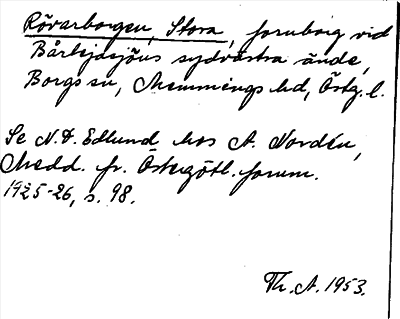 Rövarborgen, Stora, fornborg vid
Bårlejdsjöns sydvästra ände,
Borgs sn, Memmings hd, Östg. l.
Se N. D. Edlund hos A. Nordén,
Medd. fr. Östergötl. fornm.
1925-26, s. 98.
Th. A. 1953.